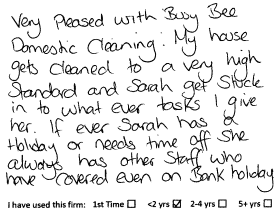 Very Pleased with Busy Bee
Domestic Cleaning. My house
gets cleaned to a very high
Standard and Sarah get Stuck
in to what ever tasks I give
her. If ever Sarah has a
Holiday or needs time off She
always has other Staff who
have covered even on Bank holiday
I have used this firm: 1st Time ☐ <2 yrs ☑ 2-4 yrs ☐ 5+ yrs ☐